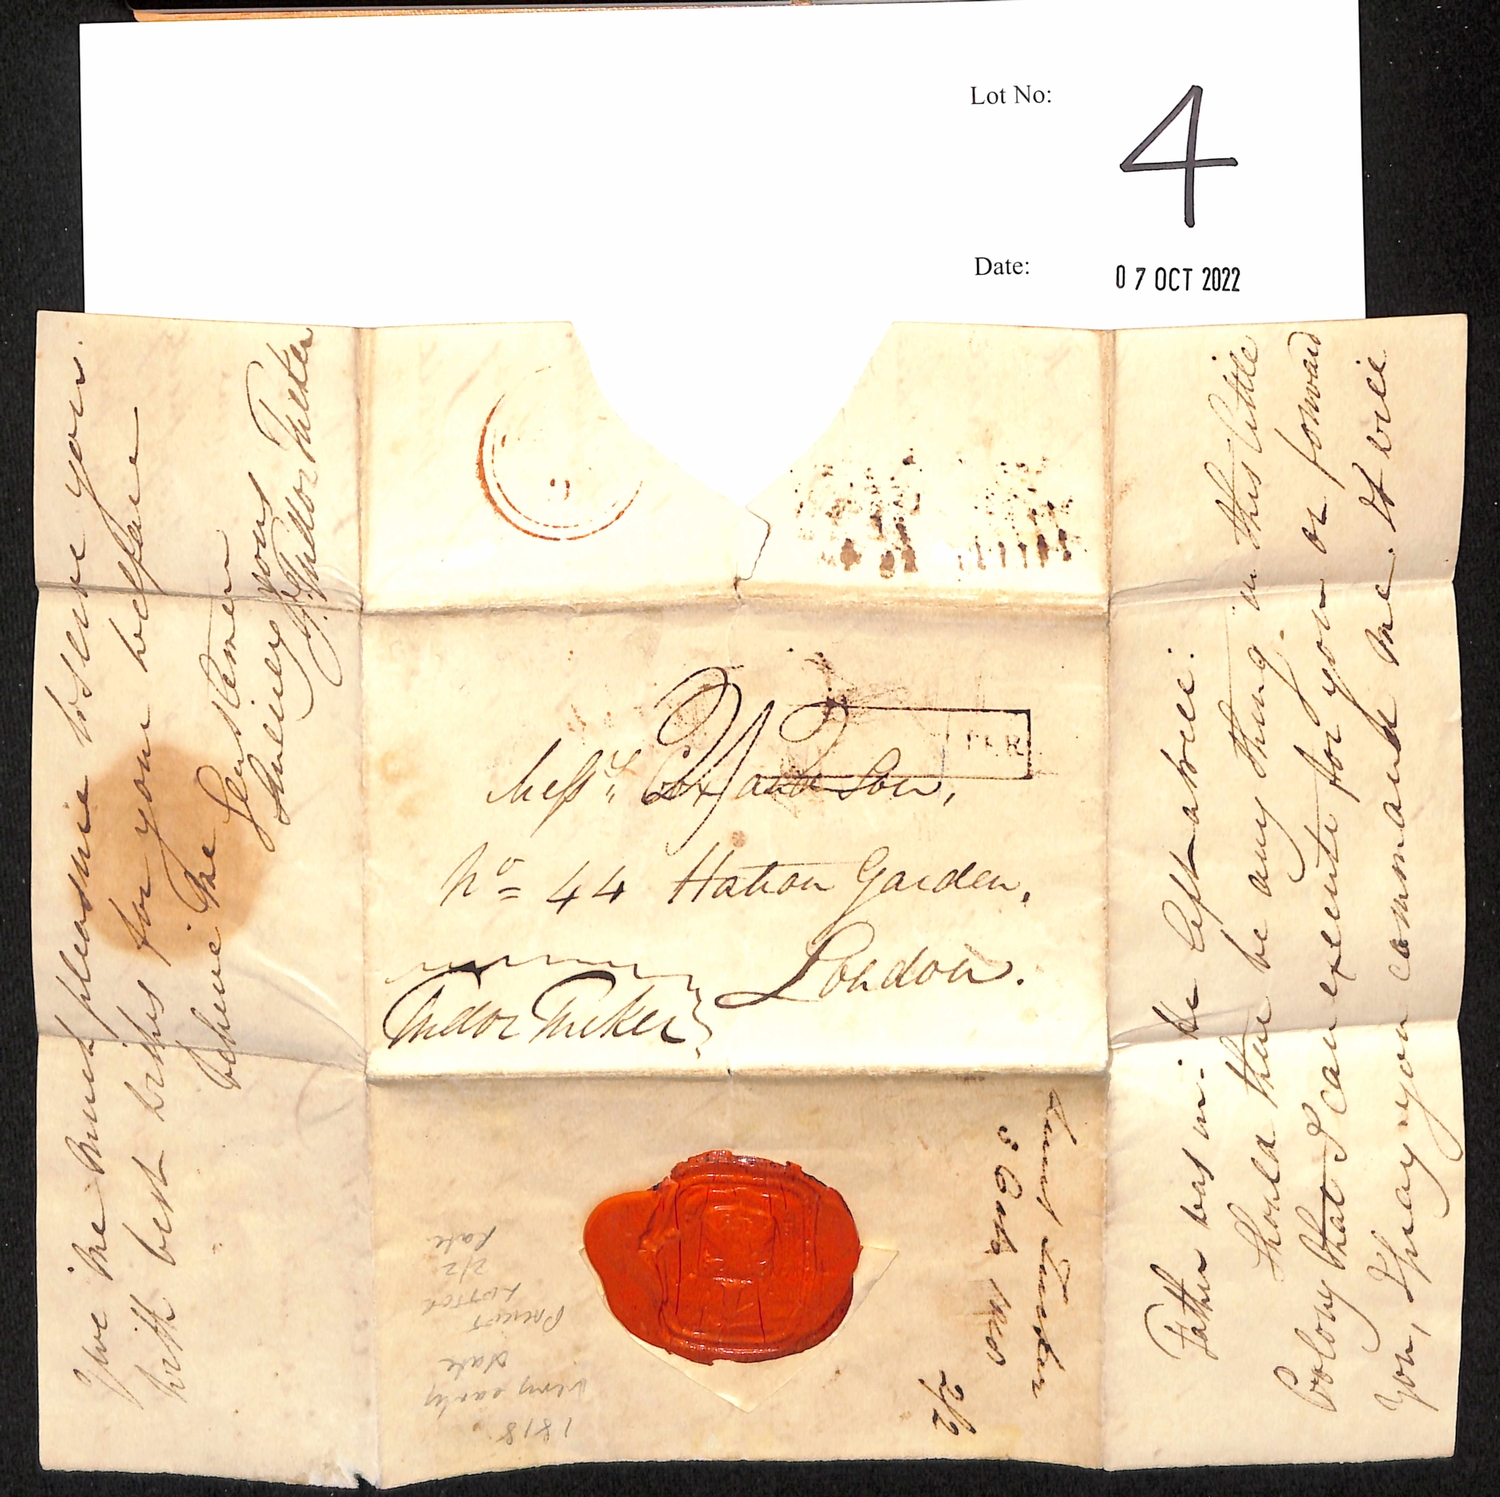 Lot No: 4
Date: 07 OCT 2022
Father was in. be left a trice.
Should there be any thing in this little
Colony that I can execute for you or forward
you, I pray you command me. It will
give me much pleasure to serve you.
with best wishes for your welfare
believe me
Gentlemen
yours
Tudor Tucker
2/2
PER
Messrs. Cox and Son,
No 44 Hatton Garden,
London.
Tudor Tucker
2/2
1818
very early
date
2/2
rate